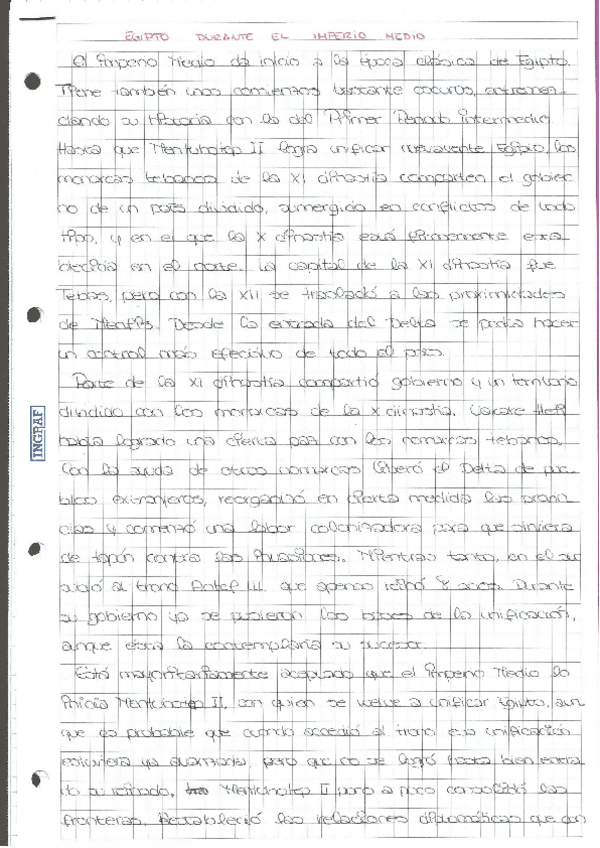 EGIPTO DURANTE EL IMPERIO MEDIO
El Imperio Medio da inicio a la época clásica de Egipto.
Tiene también unos comienzos bastante oscuros, entremez-
clando su historia con la del Primer Periodo Intermedio.
Hasta que Mentuhotep II logra unificar nuevamente Egipto, los
monarcas tebanos de la XI dinastía comparten el gobier-
no de un país dividido, sumergido en conflictos de todo
tipo, y en el que la X dinastía está firmemente esta-
blecida en el norte. La capital de la XI dinastía fue
Tebas, pero con la XII se trasladó a las proximidades
de Menfis. Desde la entrada del Delta se podía hacer
un control más efectivo de todo el país.
Parte de la XI dinastía compartió gobierno y un territorio
dividido con los monarcas de la X dinastía.
había logrado una cierta paz con los nomarcas tebanos.
Con la ayuda de otros nomarcas liberó el Delta de pue-
blos extranjeros, reorganizó en cierta medida las provin-
cias y comenzó una labor colonizadora para que sirviera
de tapón contra las invasiones. Mientras tanto, en el sur
subió al trono Antef III, que apenas reinó 8 años. Durante
su gobierno ya se pusieron las bases de la unificación,
aunque ésta la contemplaría su sucesor.
Está mayoritariamente aceptado que el Imperio Medio lo
inicia Mentuhotep II, con quien se vuelve a unificar Egipto, aun-
que es probable que cuando accedió al trono esa unificación
estuviera ya avanzada, pero que no se logró hasta bien entra-
do su reinado. Mentuhotep II poco a poco consolidó las
fronteras. Restableció las relaciones diplomáticas que con
INGRAF